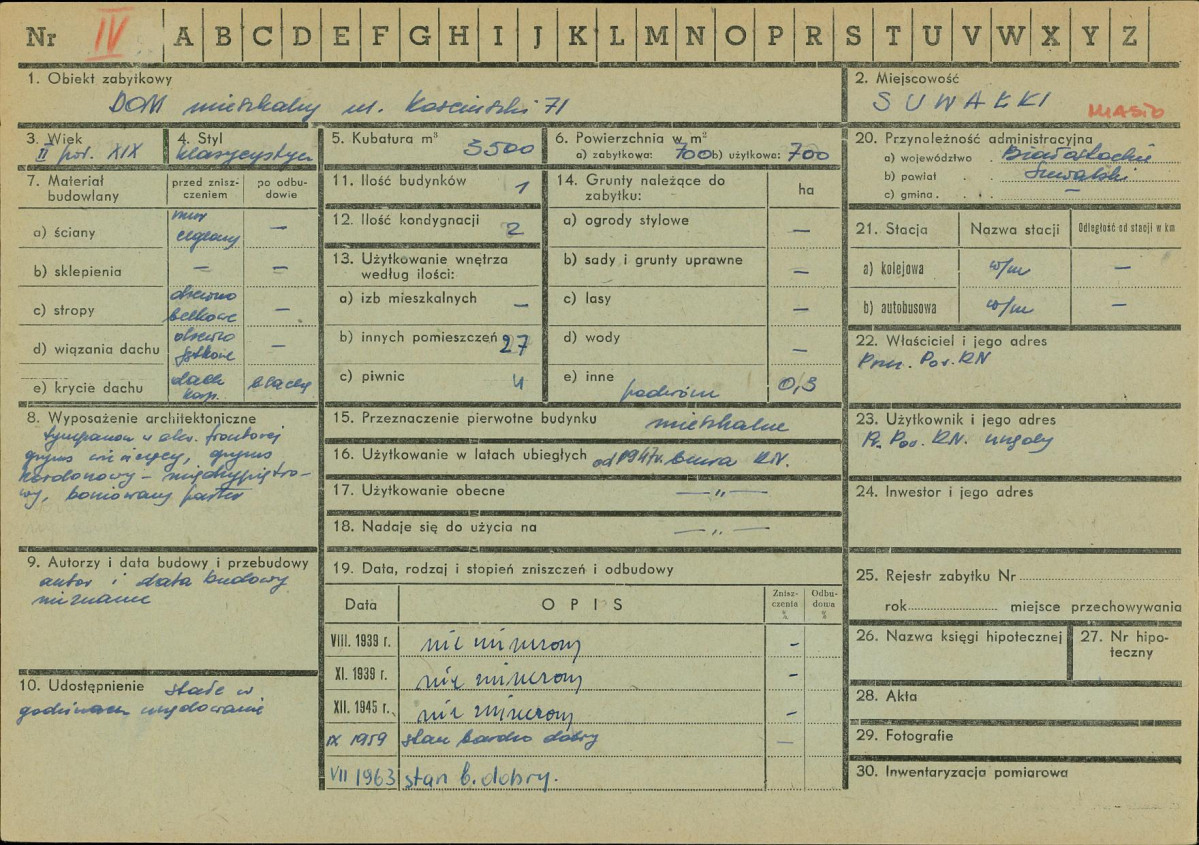 Nr IV A B C D E F G H I J K L M N O P R S T U V W X Y Z
1. Obiekt zabytkowy
DOM mieszkalny ul. Kościuszki 71
2. Miejscowość
SUWAŁKI MIASTO
3. Wiek
II poł. XIX
4. Styl
klasycystycz
5. Kubatura m³ 3500
6. Powierzchnia w m²
a) zabytkowa: 700 b) użytkowa: 700
7. Materiał budowlany
przed zniszczeniem
po odbudowie
a) ściany mur ceglany —
b) sklepienia — —
c) stropy drewno belkowe —
d) wiązania dachu drewno —
e) krycie dachu dach blachy
8. Wyposażenie architektoniczne
tympanon w elew. frontowej
gzyms wieńczący, gzyms
kordonowy – międzypiętro-
wy, boniowany parter
9. Autorzy i data budowy i przebudowy
autor i data budowy
nieznane
10. Udostępnienie stałe w
godzinach urzędowania
11. Ilość budynków 1
12. Ilość kondygnacji 2
13. Użytkowanie wnętrza
według ilości:
a) izb mieszkalnych —
b) innych pomieszczeń 27
c) piwnic 4
14. Grunty należące do
zabytku:
ha
a) ogrody stylowe —
b) sady i grunty uprawne —
c) lasy —
d) wody —
e) inne podwórze 0,3
15. Przeznaczenie pierwotne budynku mieszkalne
16. Użytkowanie w latach ubiegłych od 1947r. biura RN.
17. Użytkowanie obecne — „ —
18. Nadaje się do użycia na — „ —
19. Data, rodzaj i stopień zniszczeń i odbudowy
Data
OPIS
Zniszczenia %
Odbudowa %
VIII. 1939 r. nie niszczony —
XI. 1939 r. nie niszczony —
XII. 1945 r. nie niszczony —
IX 1959 stan bardzo dobry —
VII 1963 stan b. dobry.
20. Przynależność administracyjna
a) województwo . Białostockie
b) powiat . . Suwalski
c) gmina . . . —
21. Stacja
Nazwa stacji
Odległość od stacji w km
a) kolejowa w/m —
b) autobusowa w/m —
22. Właściciel i jego adres
Prez. Pow. RN
23. Użytkownik i jego adres
Pr. Pow. RN. urzędy
24. Inwestor i jego adres
25. Rejestr zabytku Nr
rok miejsce przechowywania
26. Nazwa księgi hipotecznej
27. Nr hipo-
teczny
28. Akta
29. Fotografie
30. Inwentaryzacja pomiarowa